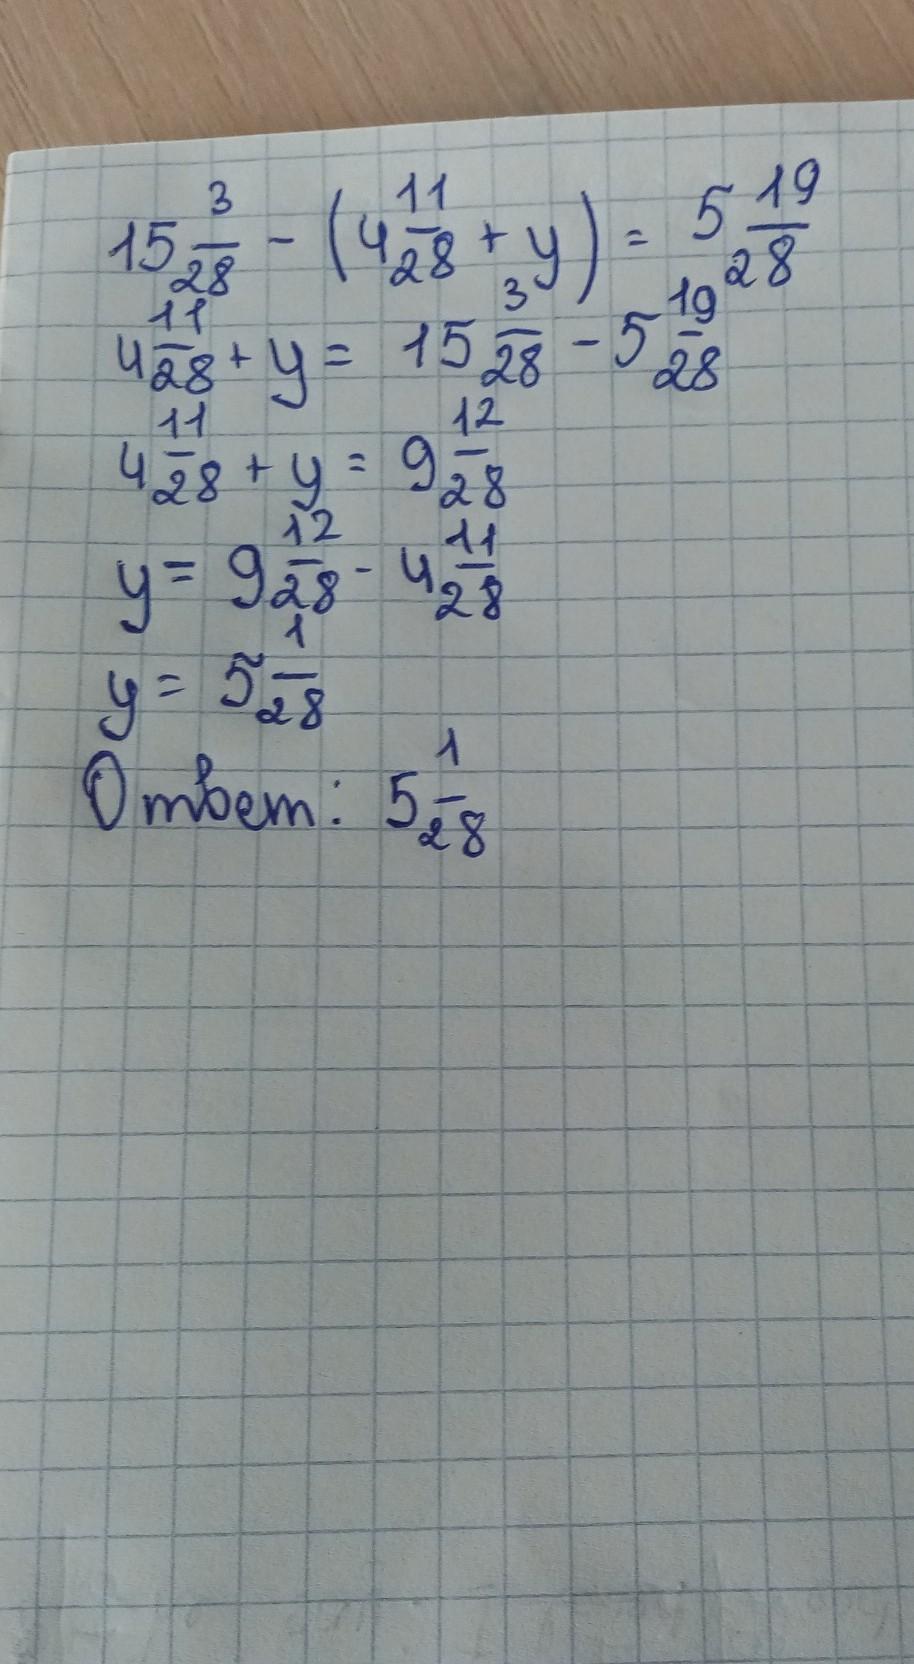 15 3/28 - (4 11/28 + y) = 5 19/28
4 11/28 + y = 15 3/28 - 5 19/28
4 11/28 + y = 9 12/28
y = 9 12/28 - 4 11/28
y = 5 1/28
Ответ: 5 1/28